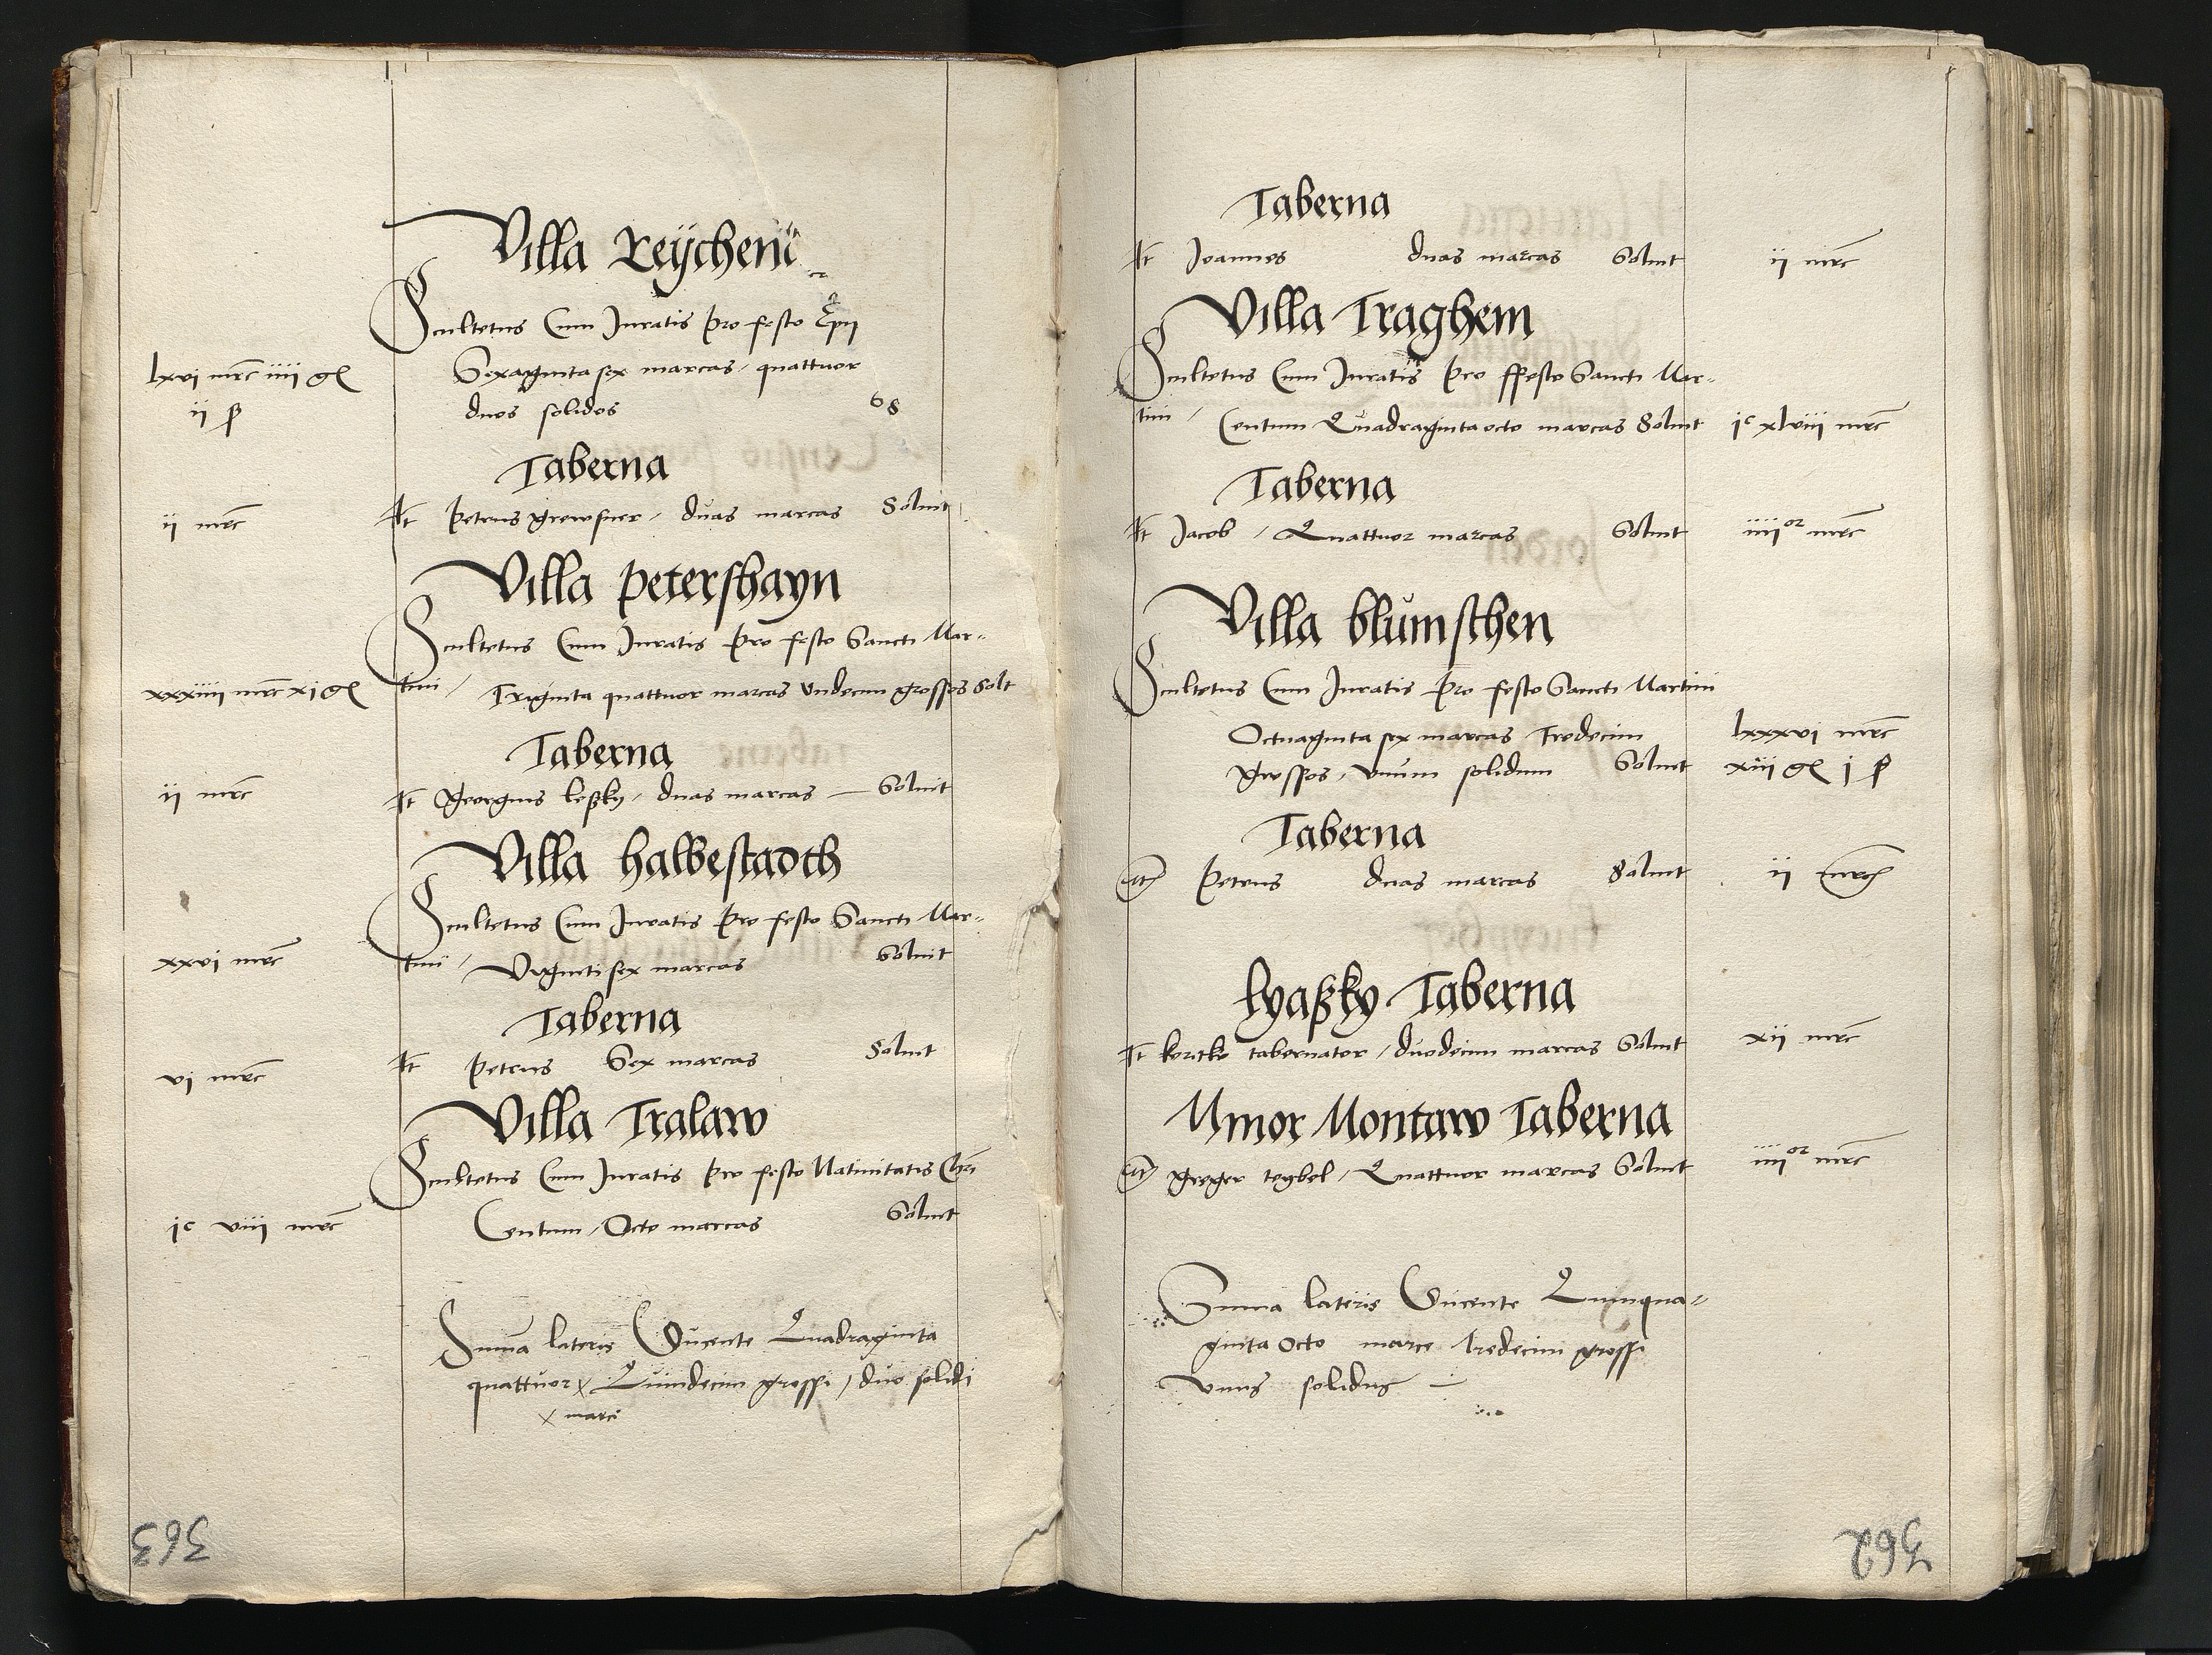 Villa Reÿchen
Scultetus Cum Juratis pro festo Epÿ
lxvi mrc iiii gl Sexaginta sex marcas / quattuor
ii ß duos solidos
Taberna
ii mrc It petrus grewsner / duas marcas Soluit
Villa petershayn
Scultetus Cum Juratis pro festo Sancti Mar-
xxxiiii mrc xi gl tini / Triginta quattuor marcas vndecim grossos Solt
Taberna
ii mrc It georgius leßky / duas marcas — Soluit
Villa halbestadth
Scultetus Cum Juratis pro festo Sancti Mar-
xxvi mrc tini / Viginti sex marcas Soluit
Taberna
vi mrc It petrus Sex marcas Soluit
Villa Tralaw
Scultetus Cum Juratis pro festo Natiuitatis Chri
jc viii mrc Centum / Octo marcas Soluit
Suma lateris Ducente Quadraginta
quattuor x Quindecim grossi / duo solidi
x marce
363
Taberna
It Joannes duas marcas Soluit ii mrc
Villa Traghem
Scultetus Cum Juratis pro ffesto Sancti Mar-
tini / Centum Quadraginta octo marcas Soluit jc xlviii mrc
Taberna
It Jacob / Quattuor marcas Soluit iiiior mrc
Villa blumsthen
Scultetus Cum Juratis pro festo Sancti Martini
Octuaginta sex marcas Tredecim lxxxvi mrc
grossos / vnum solidum Soluit xiii gl j ß
Taberna
It petrus duas marcas Soluit ii mrc
lyaßky Taberna
It koritko tabernator / duodecim marcas Soluit xii mrc
Minor Montaw Taberna
It greger teybel / Quattuor marcas Soluit iiiior mrc
Suma lateris Ducente Quinqua-
ginta Octo marce tredecim grossi
vnus solidus
362